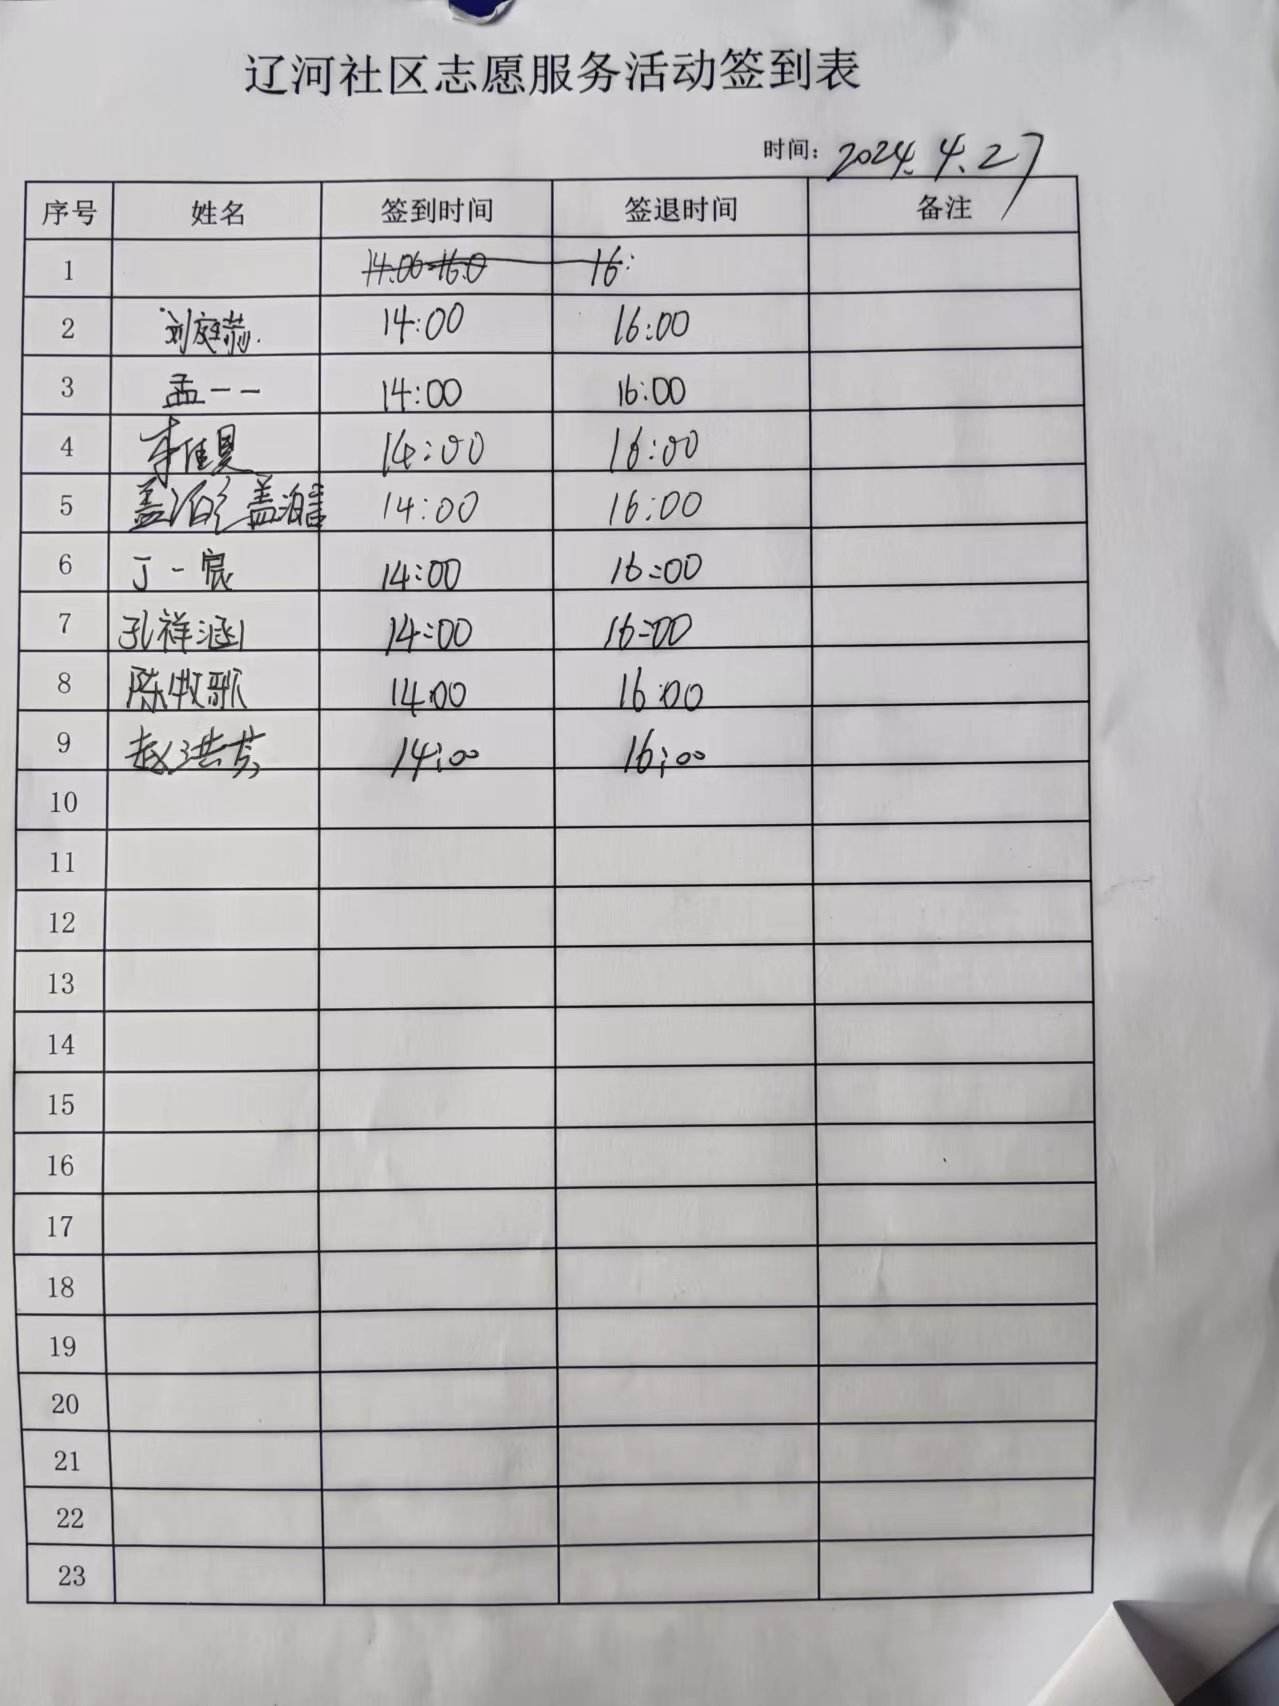 辽河社区志愿服务活动签到表
时间: 2024.4.27
序号 姓名 签到时间 签退时间 备注
1 14:00-16:0 16:
2 刘庭赫 14:00 16:00
3 孟一一 14:00 16:00
4 14:00 16:00
5 盖泊 盖泊言 14:00 16:00
6 丁一宸 14:00 16:00
7 孔祥涵 14:00 16:00
8 陈牧歌 14:00 16:00
9 赵洪芳 14:00 16:00
10
11
12
13
14
15
16
17
18
19
20
21
22
23